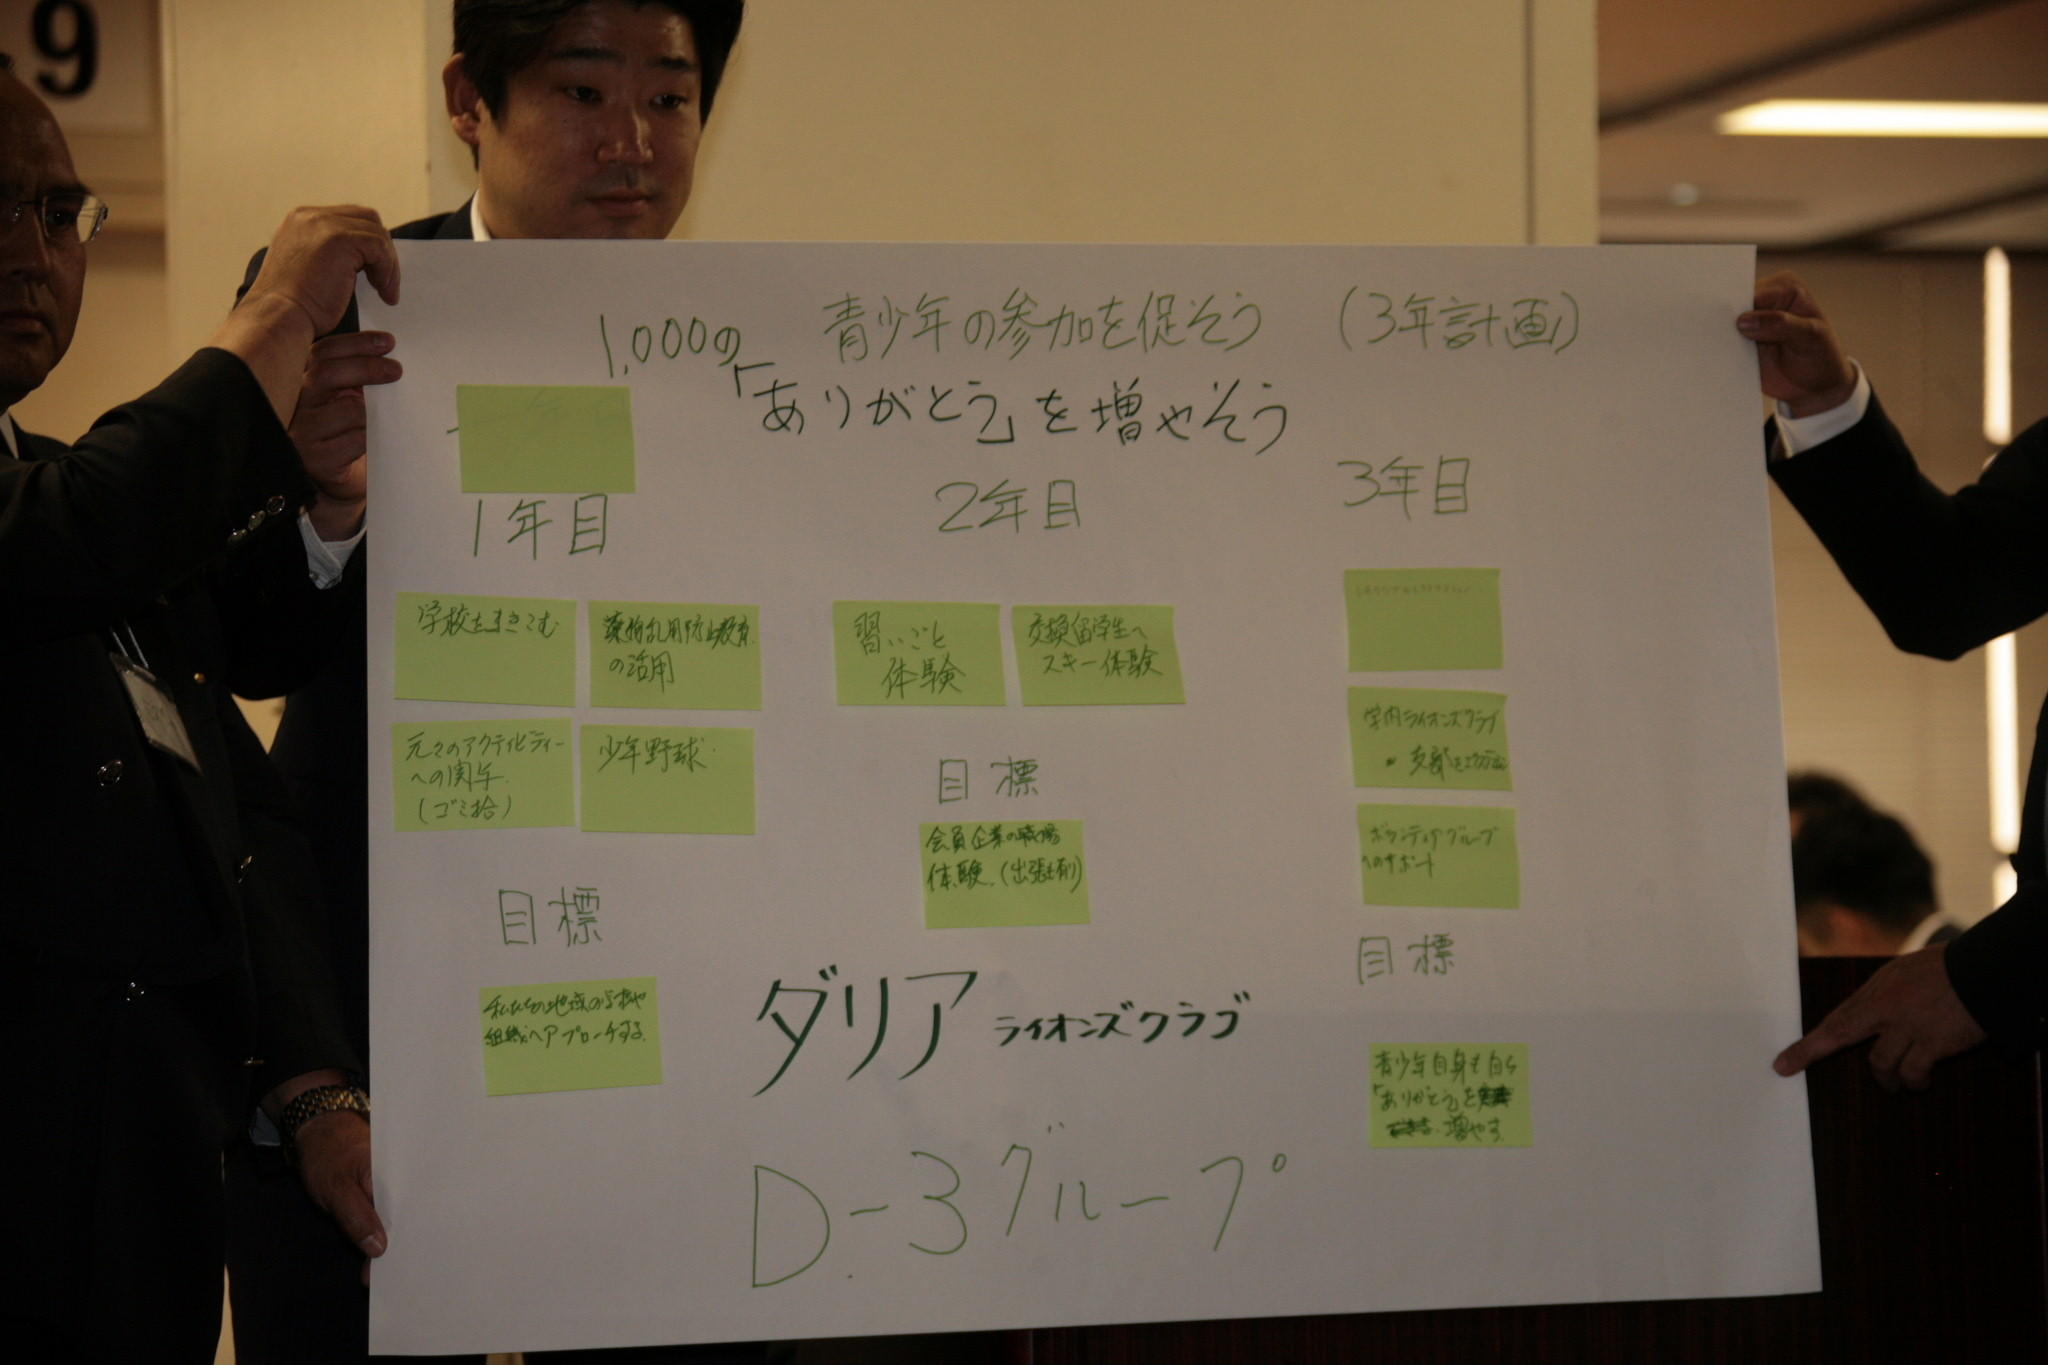 9
青少年の参加を促そう (3年計画)
1,000の「ありがとう」を増やそう
1年目
学校をまきこむ
薬物乱用防止教育
の活用
元々のアクティビティー
への関与
(ゴミ拾)
少年野球
目標
組織へアプローチする
2年目
習いごと
体験
交換留学生へ
スキー体験
目標
会員企業の職場
体験.(出張も有)
3年目
学内ライオンズクラブ
支部を
ボランティアグループ
へのサポート
目標
青少年自身も自ら
「ありがとう」を
増やす
ダリア ライオンズクラブ
D-3グループ